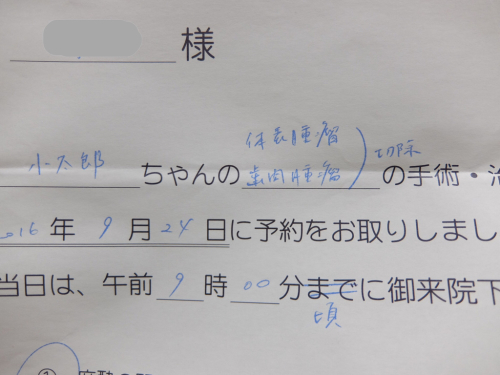 様
体表腫瘤
小太郎ちゃんの歯肉腫瘤)切除の手術・治
2016年9月24日に予約をお取りしまし
当日は、午前9時00分までに御来院下
頃
①